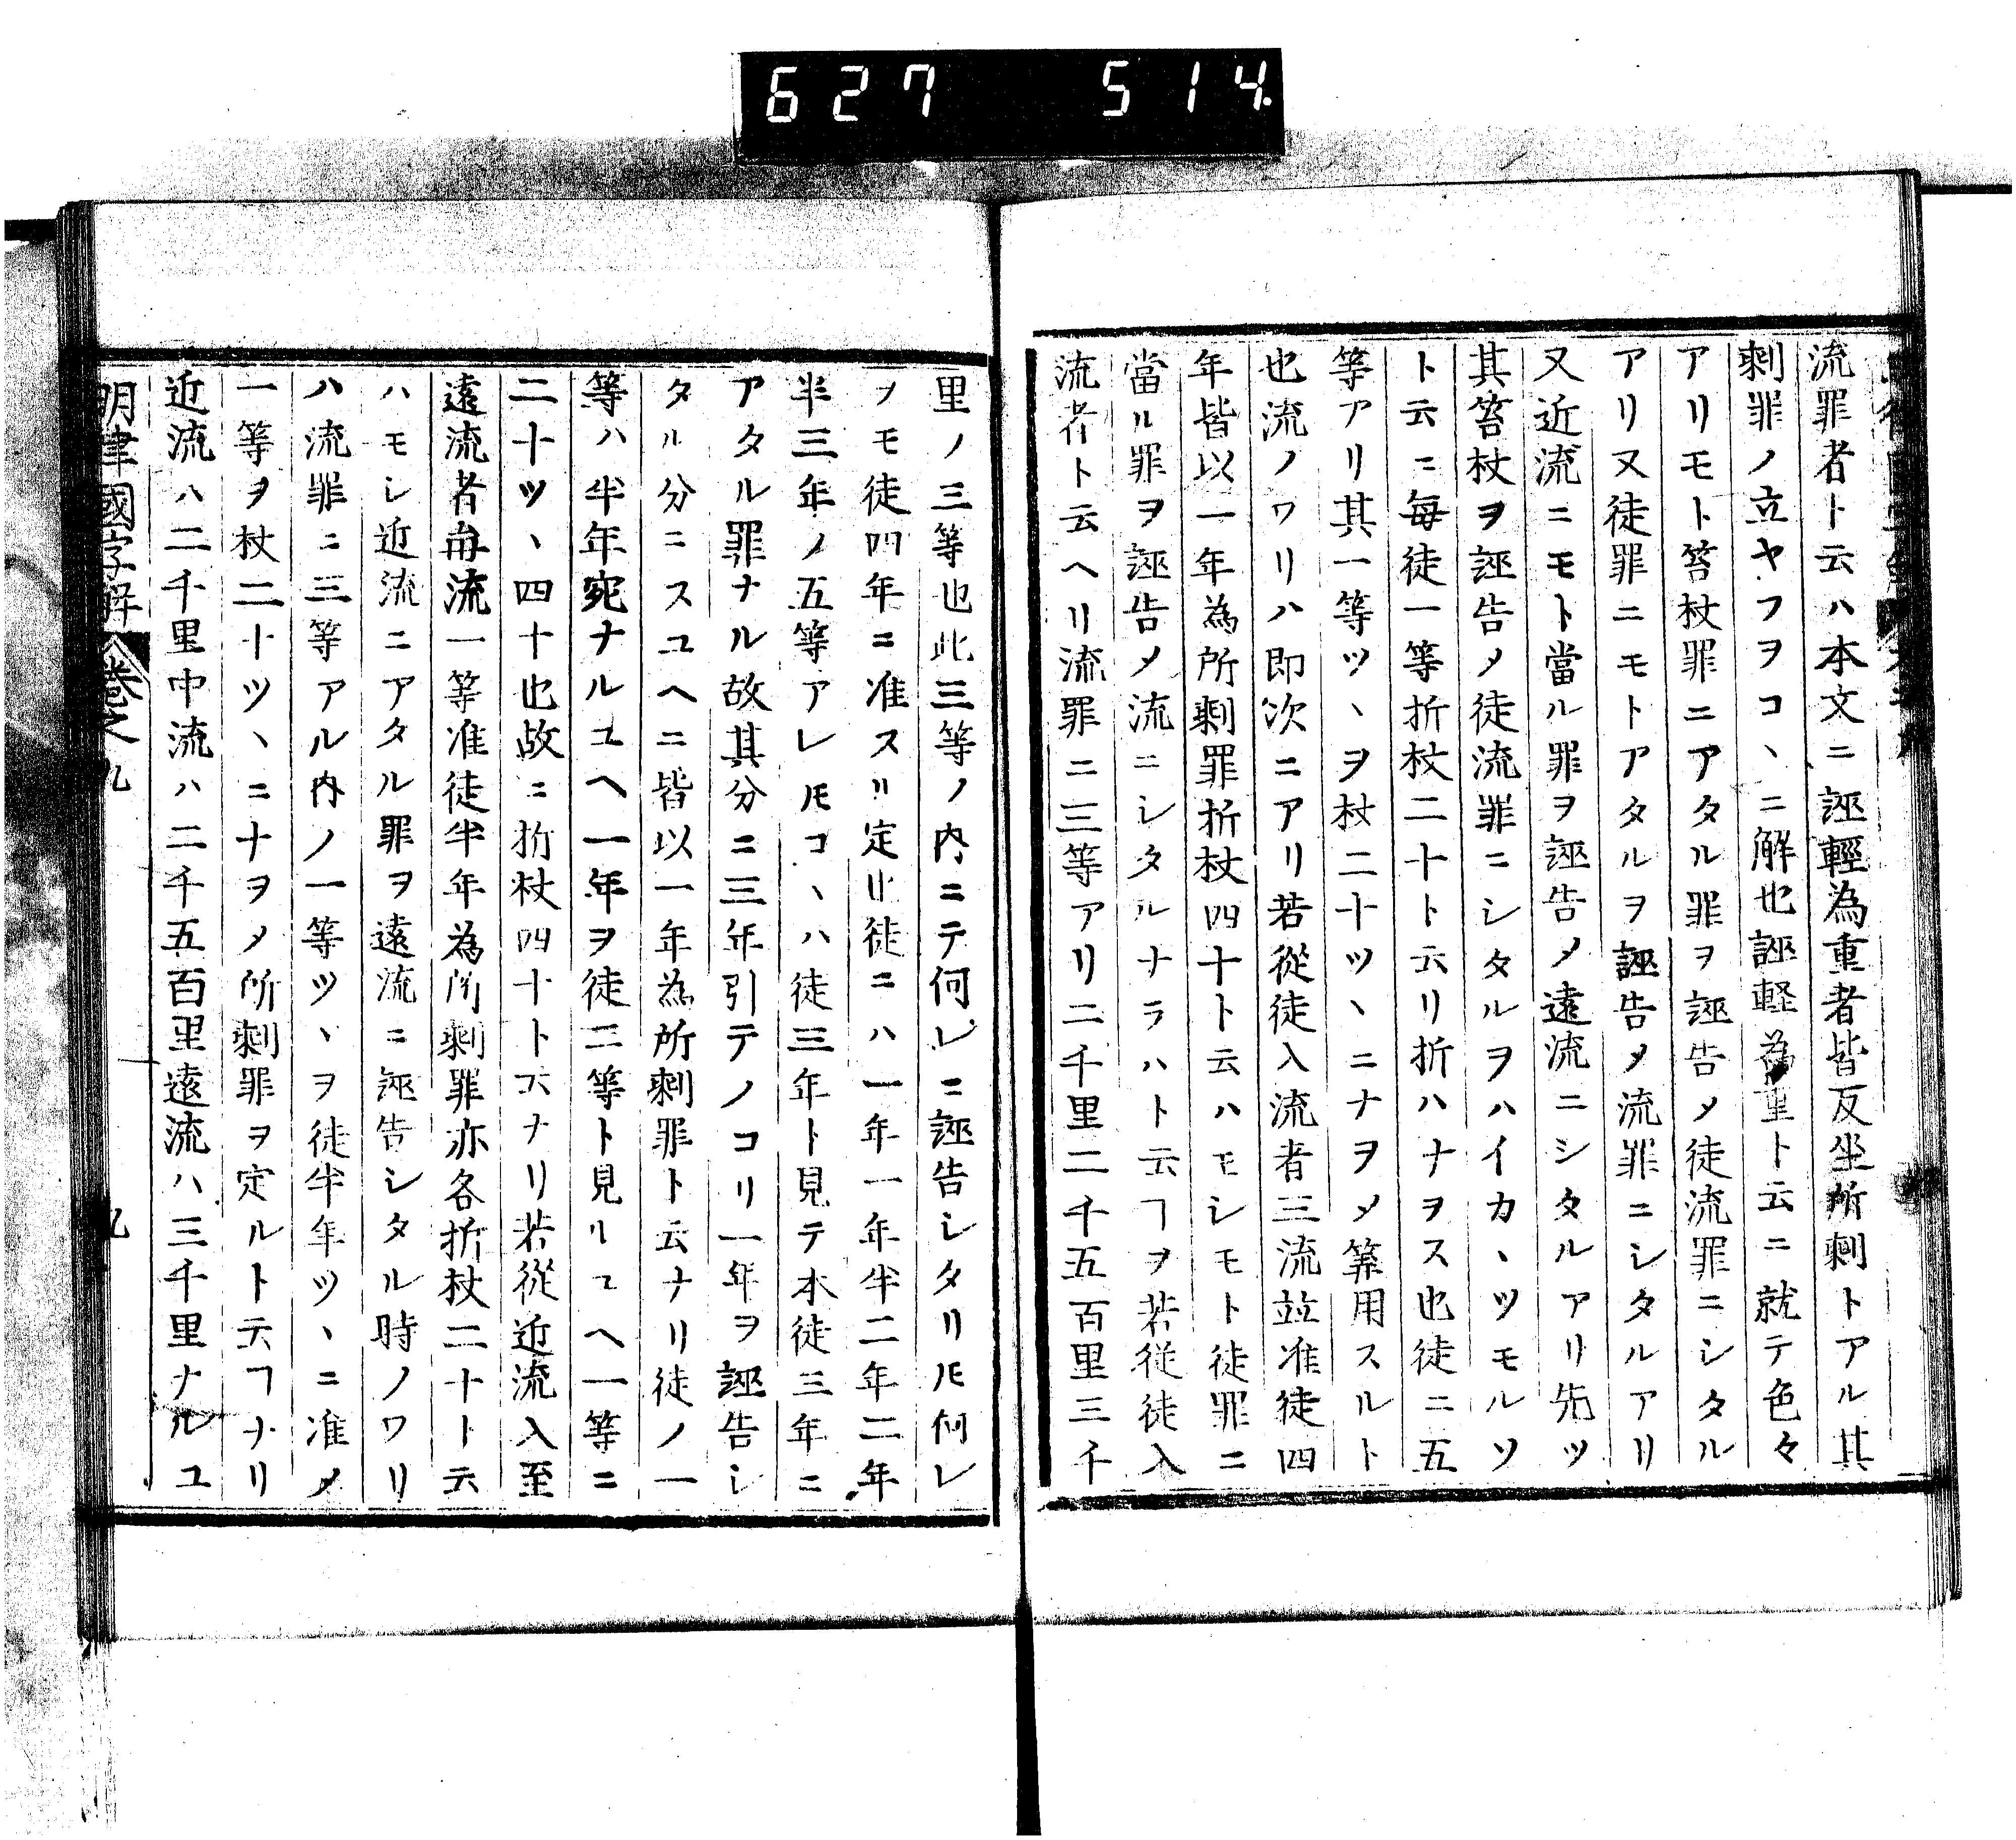 627 514
流罪者ト云ハ本文ニ誣輕為重者皆反坐所剰トアル其
剰罪ノ立ヤフヲコヽニ解也誣軽為重ト云ニ就テ色々
アリモト笞杖罪ニアタル罪ヲ誣告メ徒流罪ニシタル
アリ又徒罪ニモトアタルヲ誣告メ流罪ニシタルアリ
又近流ニモト當ル罪ヲ誣告メ遠流ニシタルアリ先ツ
其笞杖ヲ誣告メ徒流罪ニシタルヲハイカヽツモルソ
ト云ニ毎徒一等折杖二十ト云リ折ハナヲス也徒ニ五
等アリ其一等ツヽヲ杖二十ツヽニナヲメ筭用スルト
也流ノワリハ即次ニアリ若從徒入流者三流竝准徒四
年皆以一年為所剰罪折杖四十ト云ハモシモト徒罪ニ
當ル罪ヲ誣告メ流ニシタルナラハト云ヿヲ若従徒入
流者ト云ヘリ流罪ニ三等アリ二千里二千五百里三千
里ノ三等也此三等ノ内ニテ何レニ誣告シタリ𪜈何レ
ヲモ徒四年ニ准スリ定止徒ニハ一年一年半二年二年
半三年ノ五等アレ𪜈コヽハ徒三年ト見テ本徒三年ニ
アタル罪ナル故其分ニ三年引テノコリ一年ヲ誣告シ
タル分ニスユヘニ皆以一年為所剰罪ト云ナリ徒ノ一
等ハ半年宛ナルユヘ一年ヲ徒二等ト見ルユヘ一等ニ
二十ツヽ四十也故ニ折杖四十ト云ナリ若從近流入至
遠流者毎流一等准徒半年為所剰罪亦各折杖二十ト云
ハモシ近流ニアタル罪ヲ遠流ニ誣告シタル時ノワリ
ハ流罪ニ三等アル内ノ一等ツヽヲ徒半年ツヽニ准メ
一等ヲ杖二十ツヽニナヲメ所剰罪ヲ定ルト云ヿナリ
近流ハ二千里中流ハ二千五百里遠流ハ三千里ナルユ
明律國字解 卷之九 九